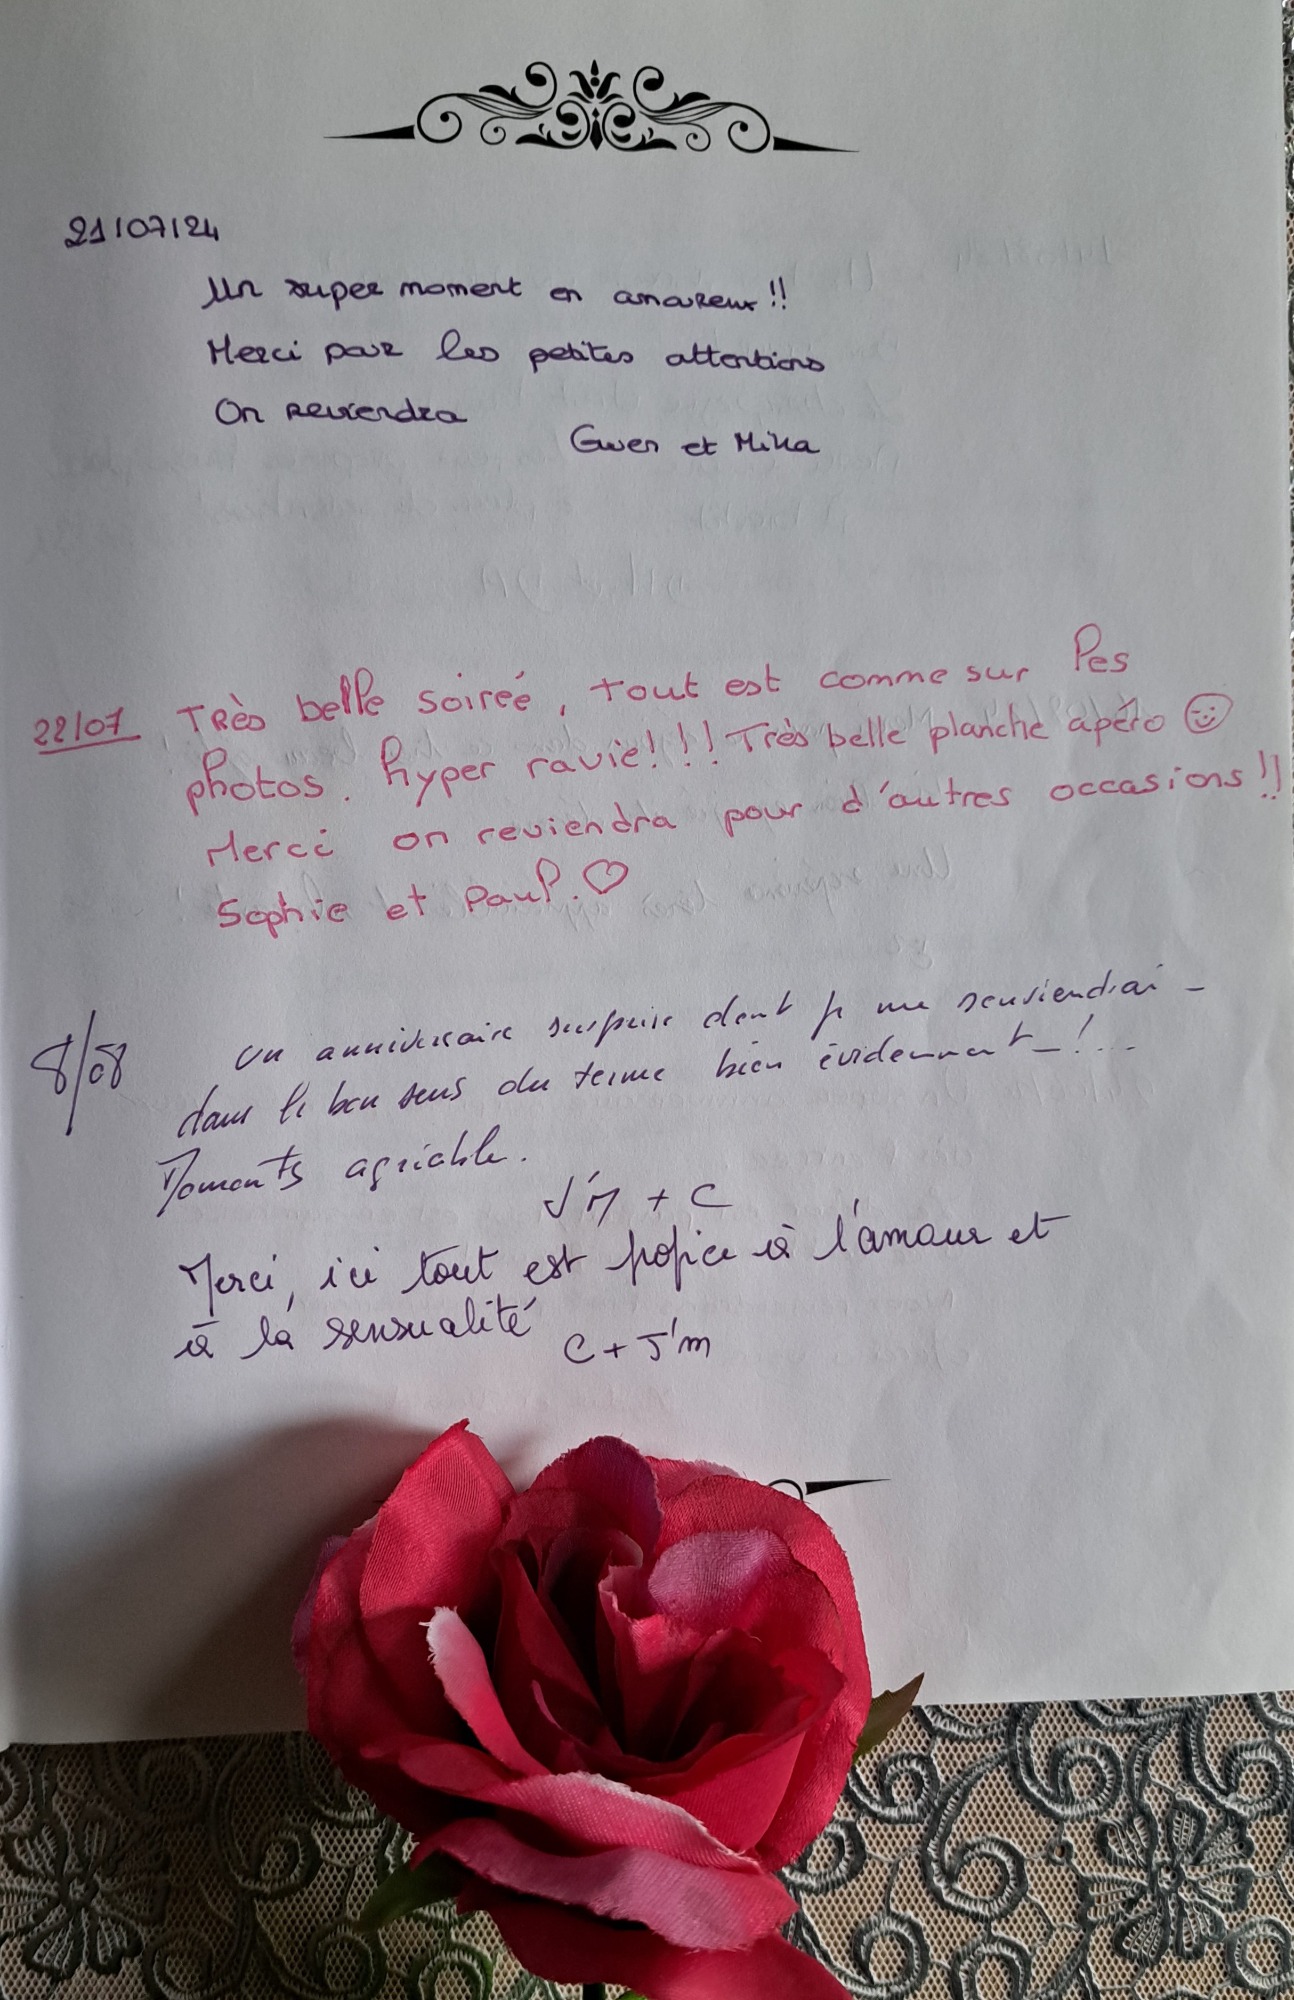 21/07/24
Un super moment en amoureux !!
Merci pour les petites attentions
On reviendra
Gwen et Mika
22/07 Très belle soireé, tout est comme sur les
photos. hyper ravie!!! Très belle planche apéro
Merci on reviendra pour d'autres occasions !!
Sophie et Paul. ♡
8/08 Un anniversaire surprise dont je me souviendrai -
dans le bon sens du terme bien évidemment - !...
Moments agréable.
J'M + C
Merci, ici tout est propice à l'amour et
à la sensualité
C + J'm